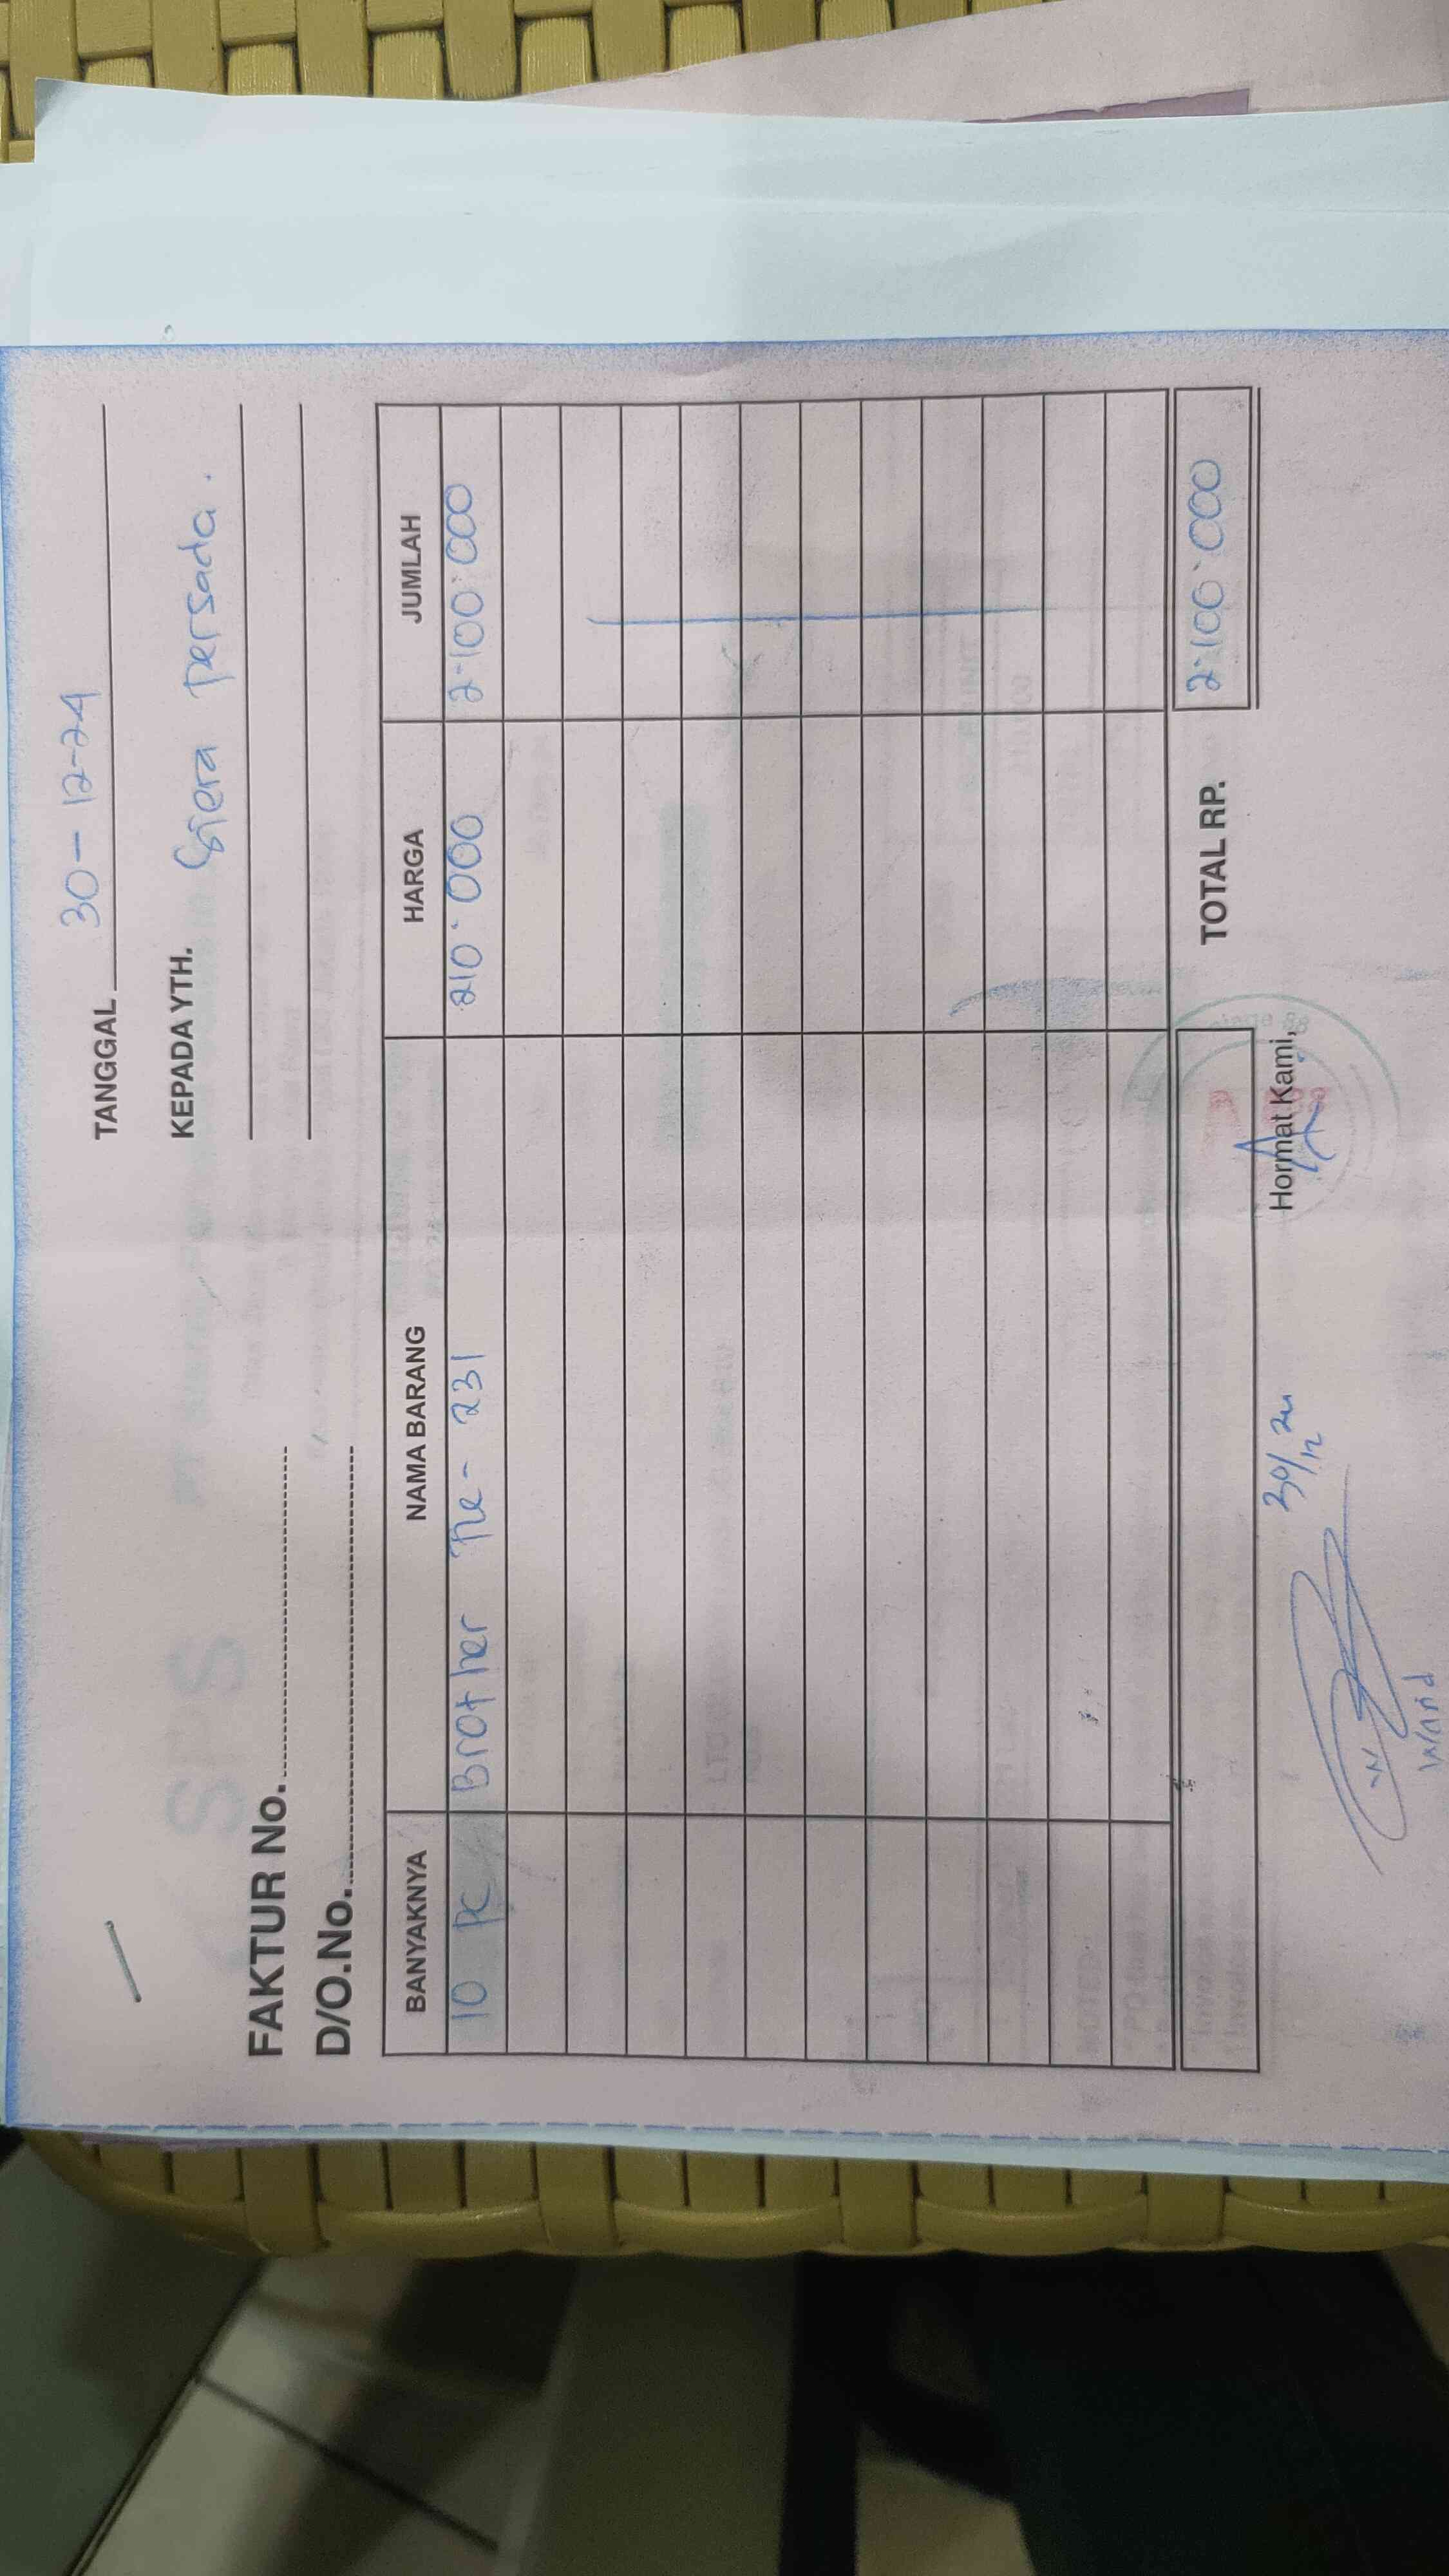 TANGGAL 30-12-24
KEPADA YTH. persada.
FAKTUR No.
D/O.No.
BANYAKNYA NAMA BARANG HARGA JUMLAH
10 pc Brother Tze-231 210.000 2.100.000
TOTAL RP. 2.100.000
Hormat Kami,
30/12 24